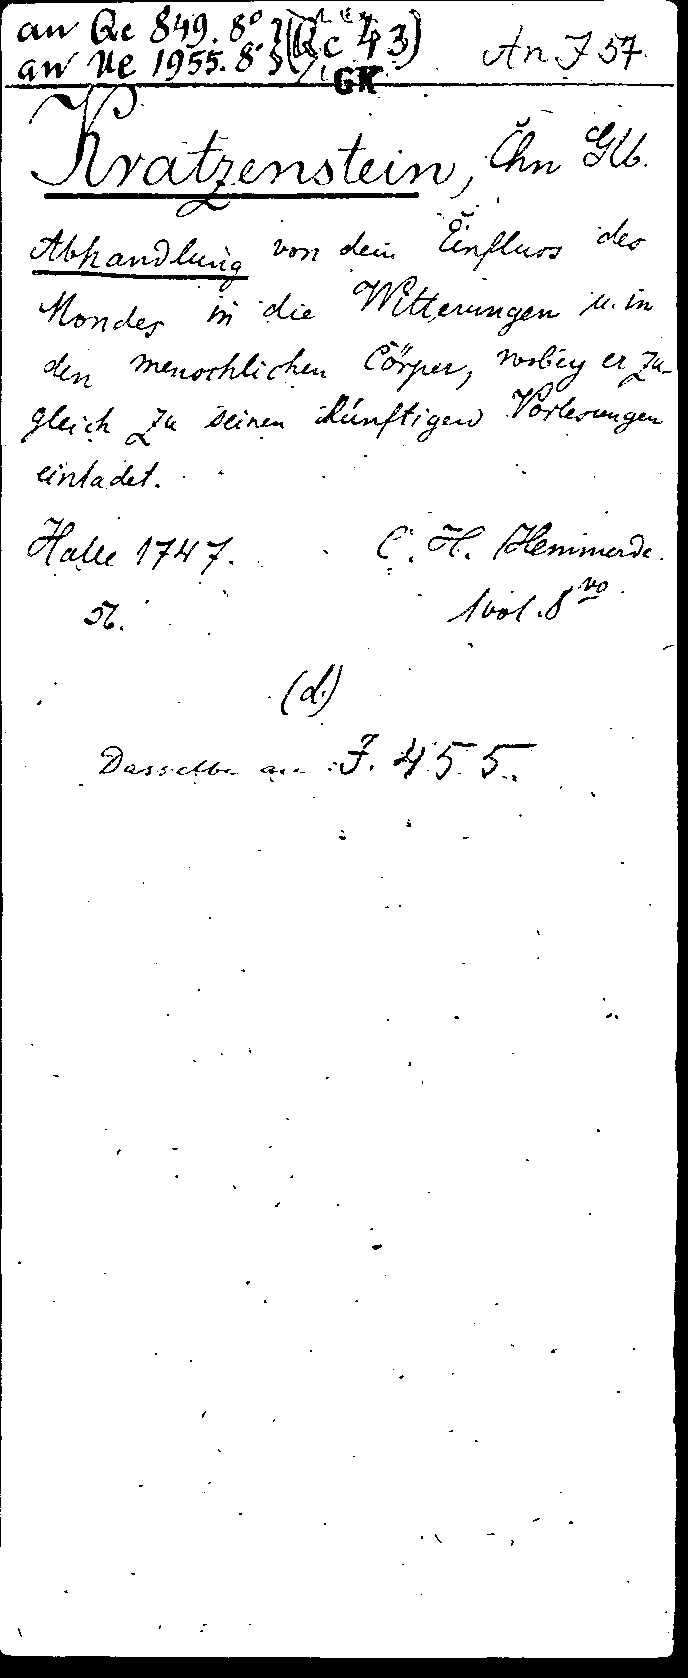 an Qc 849. 8° } (Qc 43) An J 57.
an Ue 1955. 8° }
GK
Kratzenstein, Chn Glb.
Abhandlung von dem Einfluss des
Mondes in die Witterungen u. in
den menschlichen Cörper, wobey er zu-
gleich zu seinen künftigen Vorlesungen
einladet.
Halle 1747. C. H. Hemmerde.
1 vol. 8vo
(d.)
Dasselbe an J. 455.